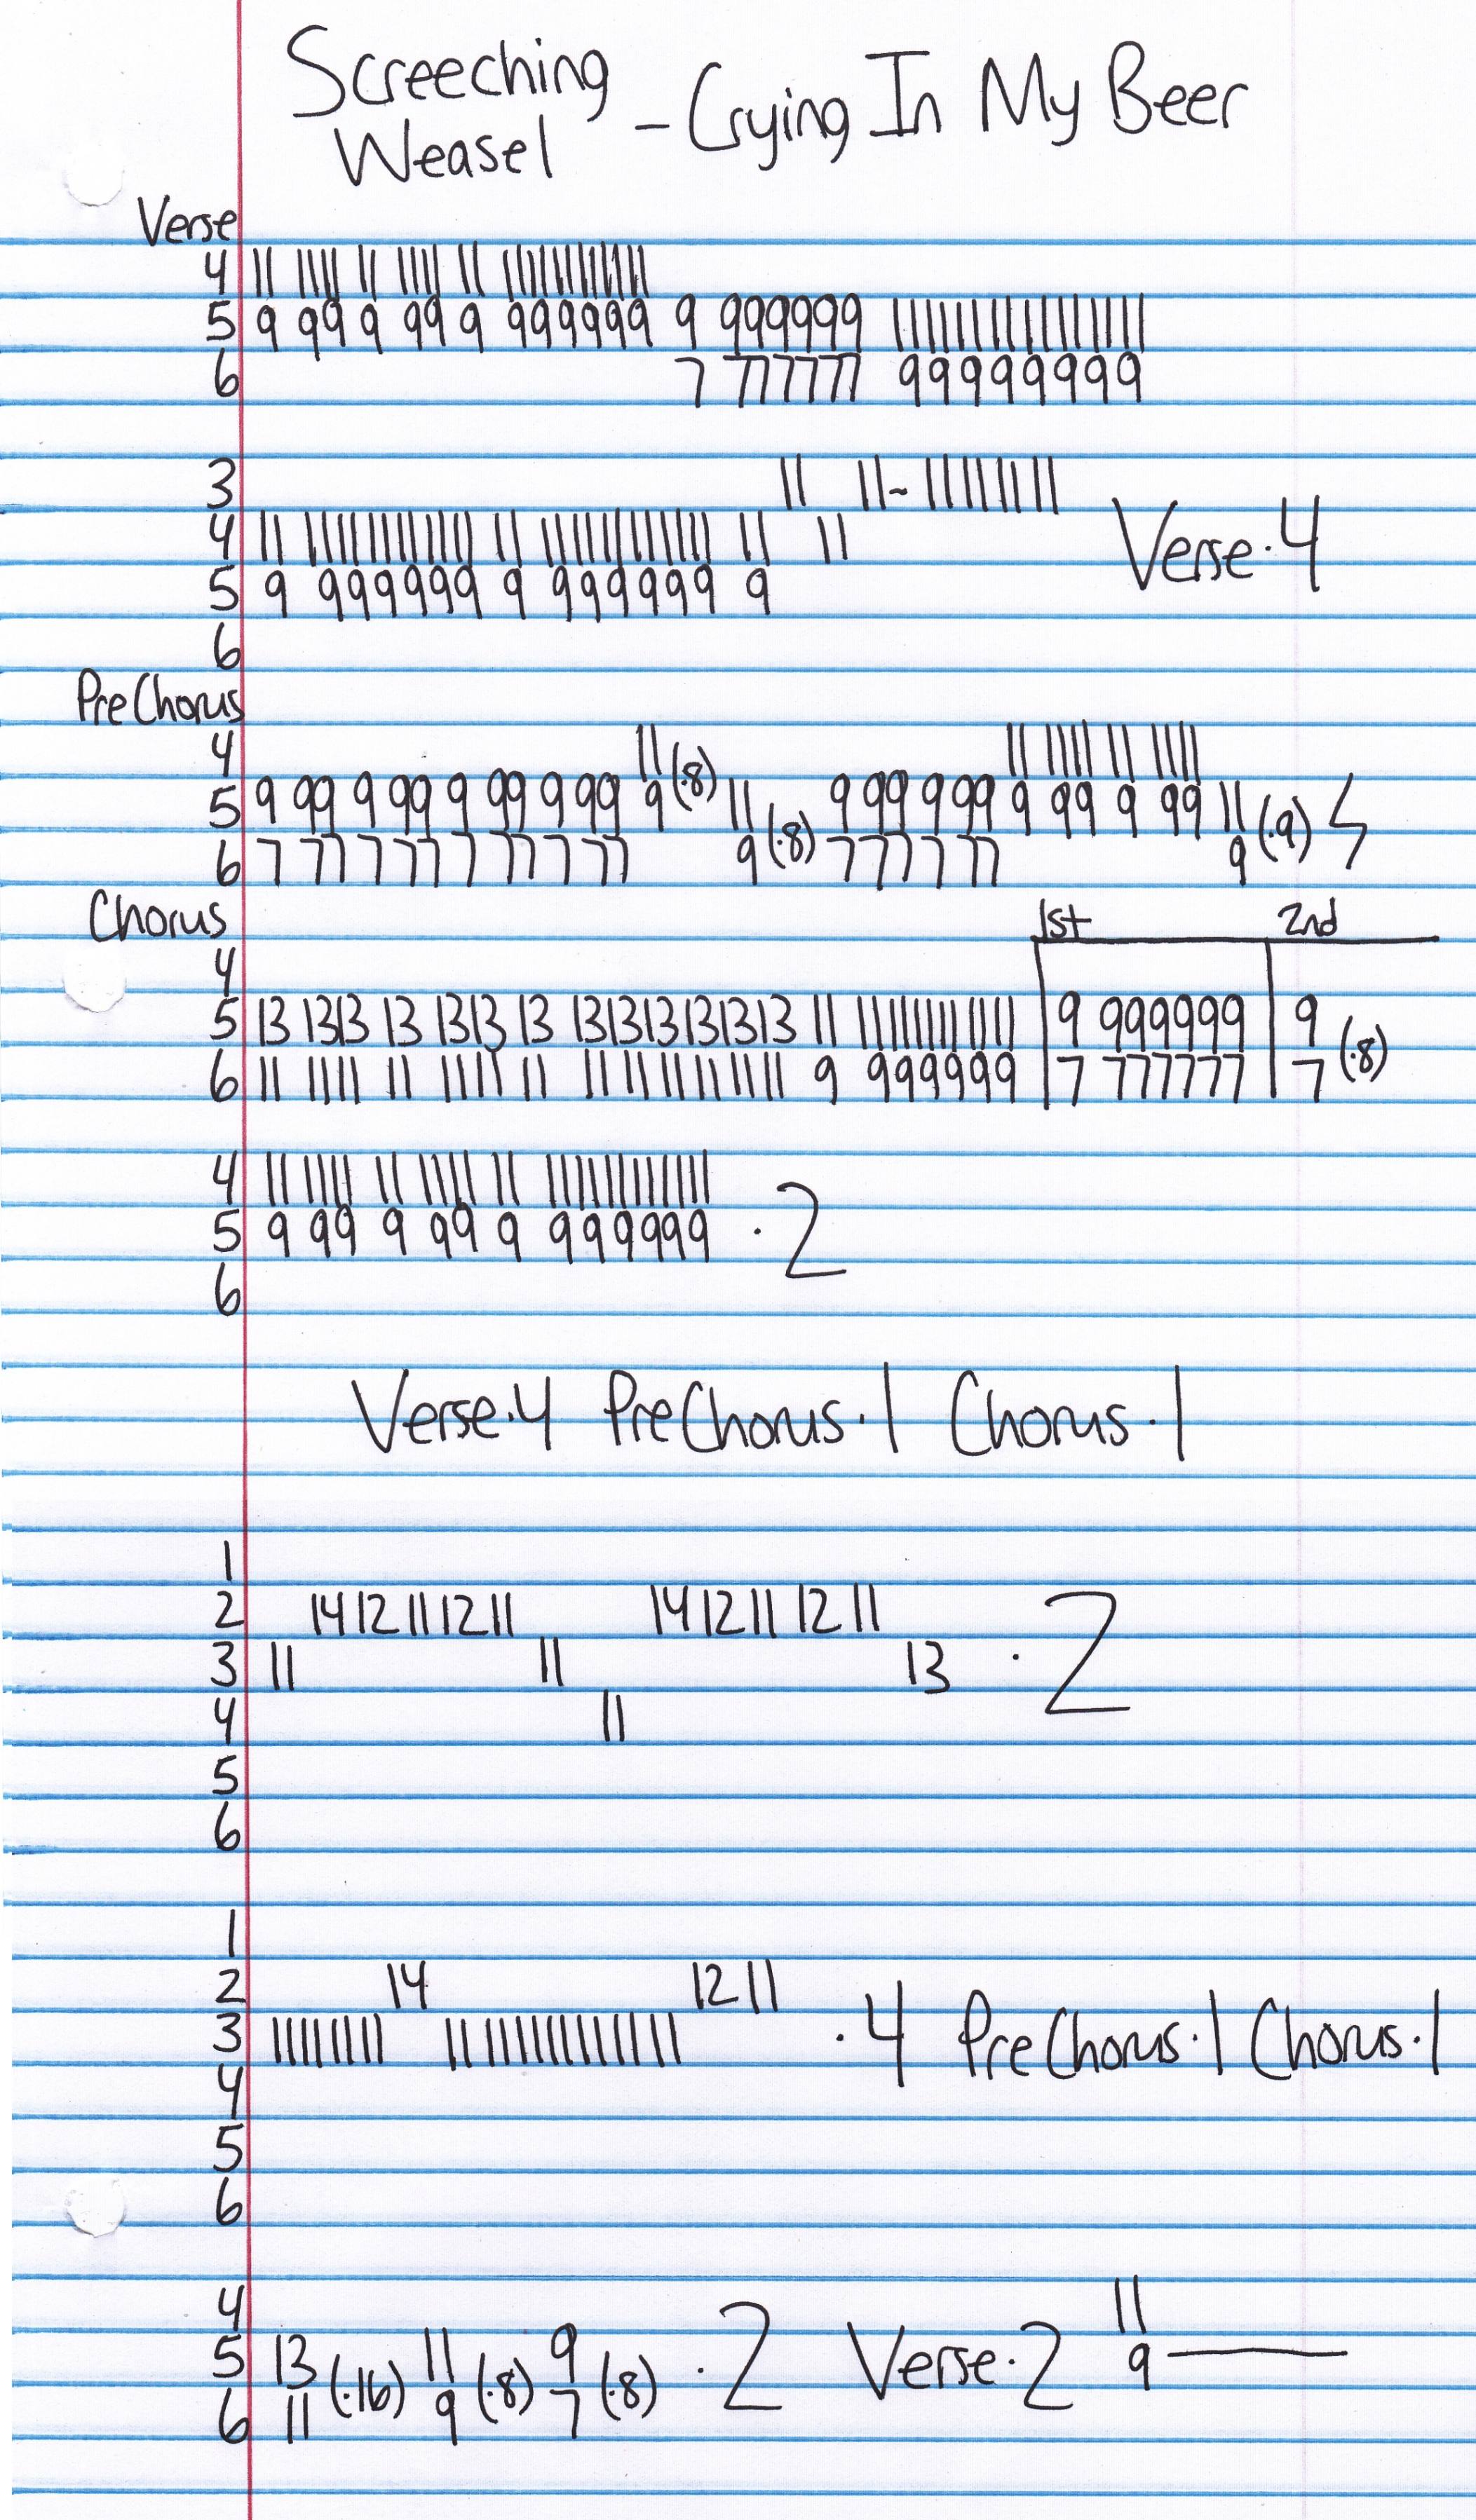 Screeching Weasel - Crying In My Beer
Verse
4 11 11 11 11 11 11 11 11 11 11 11 11 11 11
5 9 99 9 99 9 999999 9 999999 11 11 11 11 11 11 11 11
6 7 777777 99999999
3 11 11~ 11 11 11 11
4 11 11 11 11 11 11 11 11 11 11 11 11 11 11 11 11 Verse·4
5 9 999999 9 999999 9
6
PreChorus
4 11 11 11 11 11 11 11
5 9 99 9 99 9 99 9 99 9(·8) 11 9 99 9 99 9 99 9 99 11
6 7 77 7 77 7 77 7 77 9(·8) 7 77 7 77 9(·9)
Chorus 1st 2nd
4
5 13 1313 13 1313 13 131313131313 11 11 11 11 11 11 11 9 999999 9
6 11 11 11 11 11 11 11 11 11 11 11 11 11 9 999999 7 777777 7 (·8)
4 11 11 11 11 11 11 11 11 11 11 11 11 11
5 9 99 9 99 9 999999 ·2
6
Verse·4 PreChorus·1 Chorus·1
1
2 14 12 11 12 11 14 12 11 12 11
3 11 11 13 ·2
4 11
5
6
1
2 14 12 11
3 11 11 11 11 11 11 11 11 11 11 11 ·4 PreChorus·1 Chorus·1
4
5
6
4 11
5 13 11 9 ·2 Verse·2 9
6 11 (·16) 9 (·8) 7 (·8)